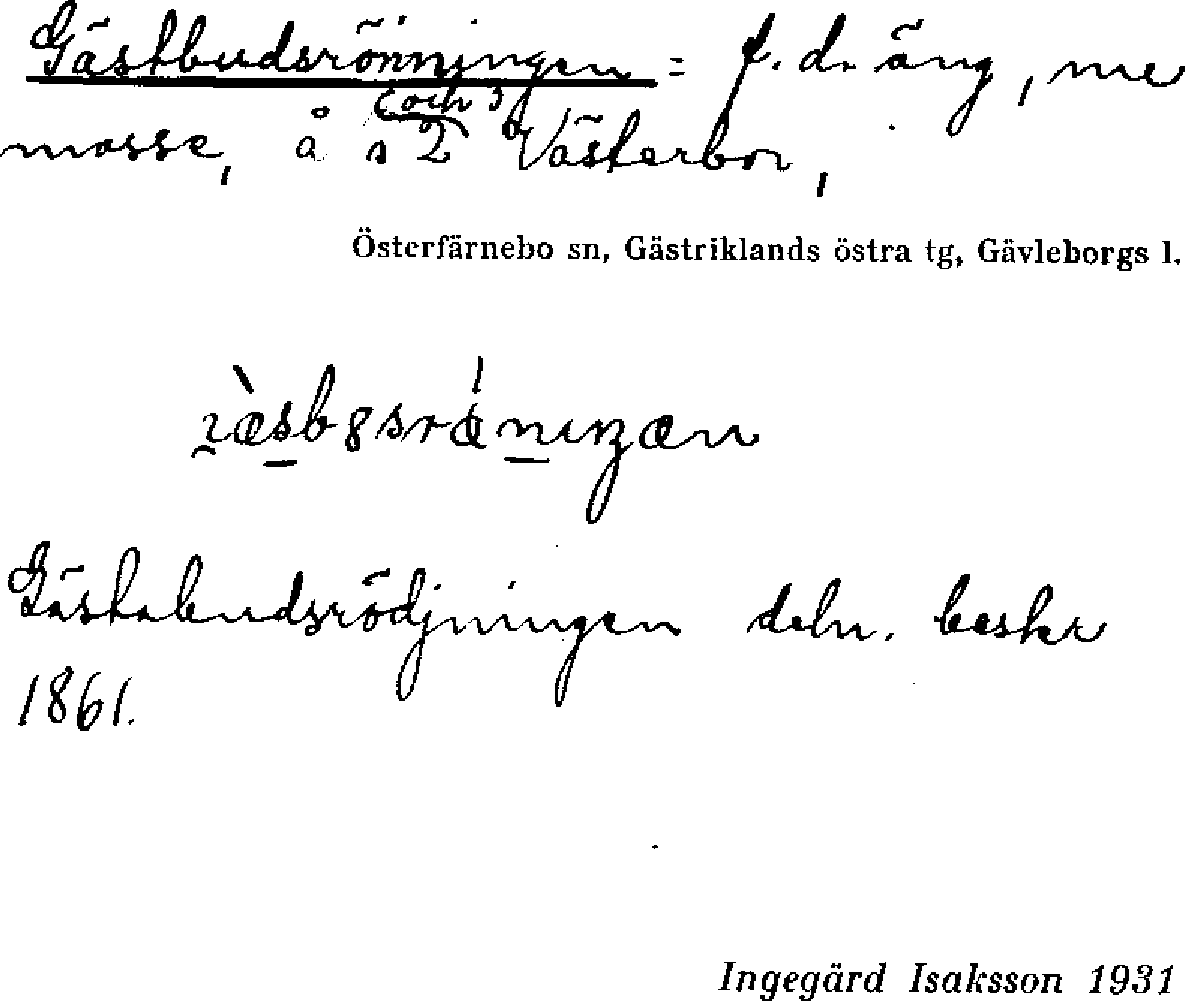 Gästbudsrönningen = f. d. äng, nu
mosse, å s 2 (och 3 Västerbor,
Österfärnebo sn, Gästriklands östra tg, Gävleborgs l.
Gästabudsrödjningen deln. beskr
1861.
Ingegärd Isaksson 1931